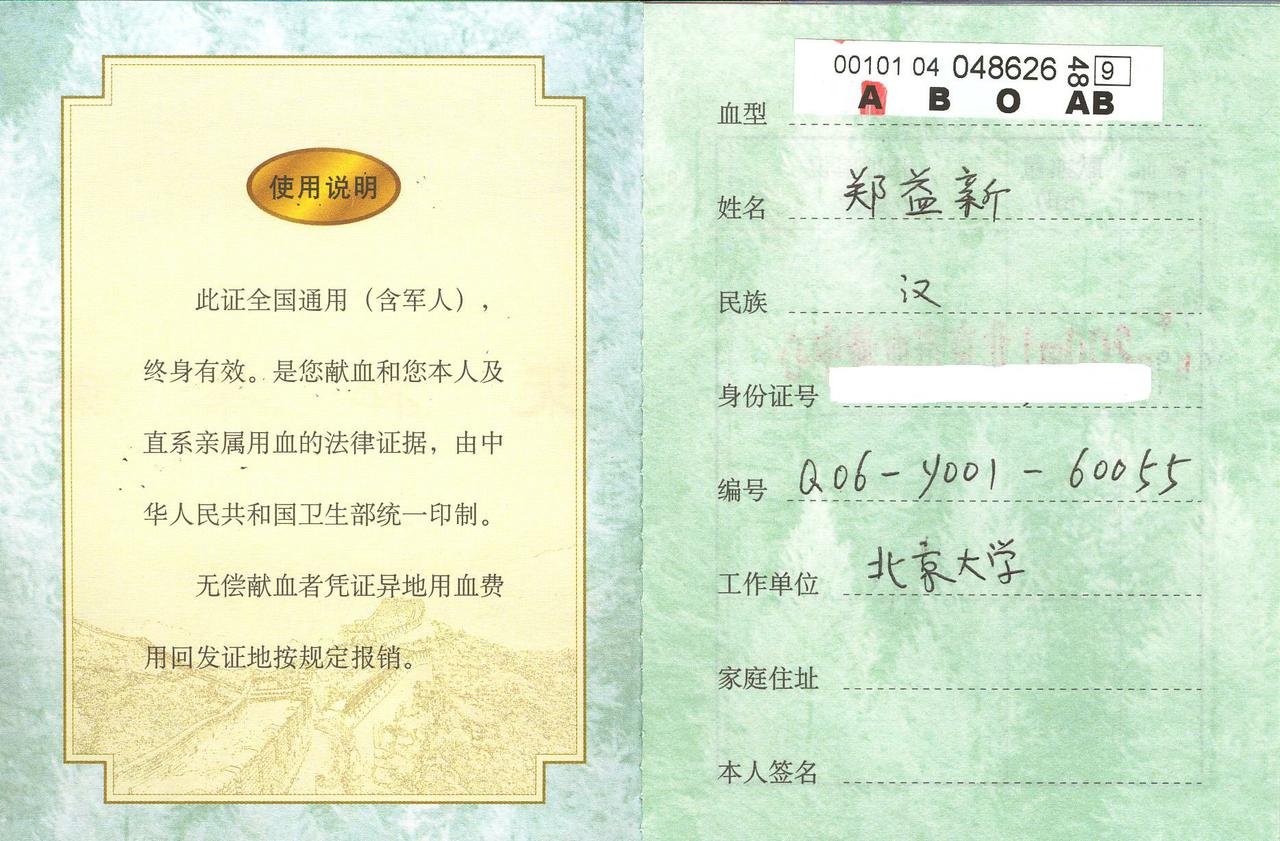 使用说明
此证全国通用（含军人），
终身有效。是您献血和您本人及
直系亲属用血的法律证据，由中
华人民共和国卫生部统一印制。
无偿献血者凭证异地用血费
用回发证地按规定报销。
00101 04 048626 48 9
A B O AB
血型
姓名 郑益新
民族 汉
身份证号
编号 Q06-y001-60055
工作单位 北京大学
家庭住址
本人签名